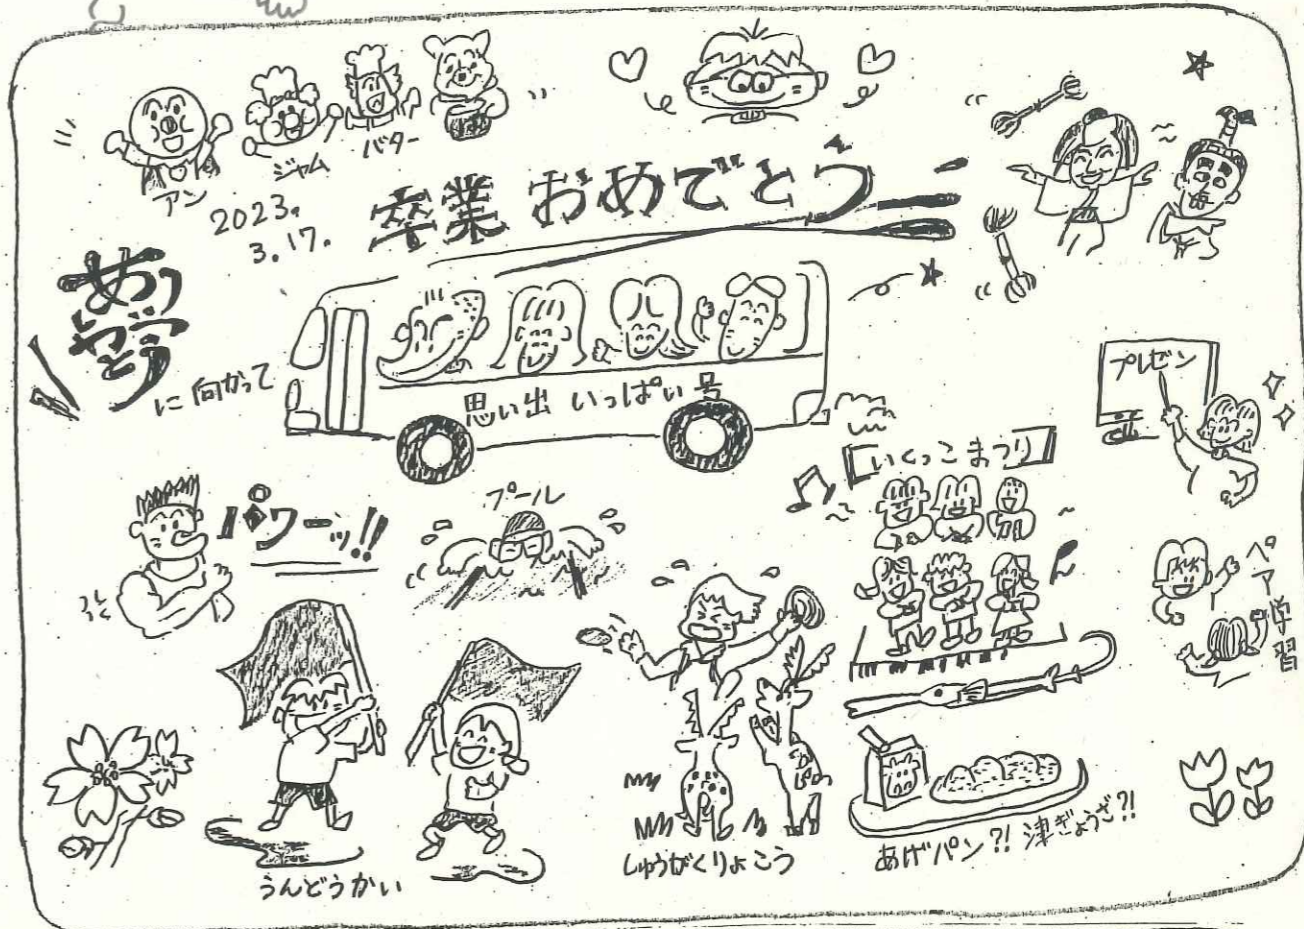 アン
ジャム
バター
2023.
3.17.
卒業おめでとう
に向かって
思い出いっぱい号
プレゼン
いくっこまつり
パワーッ!!
プール
ペア学習
うんどうかい
しゅうがくりょこう
あげパン?! 津ぎょうざ?!